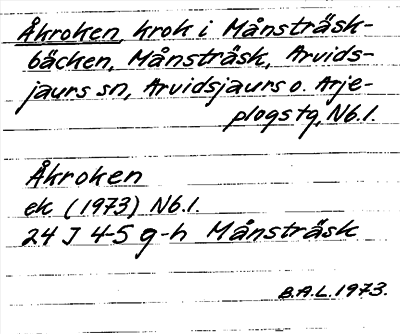 Åkroken, krok i Månsträsk-
bäcken, Månsträsk, Arvids-
jaurs sn, Arvidsjaurs o. Arje-
plogs tg, Nb.l.
Åkroken
ek (1973) Nb.l.
24 J 4-5 g-h Månsträsk
B.A.L. 1973.